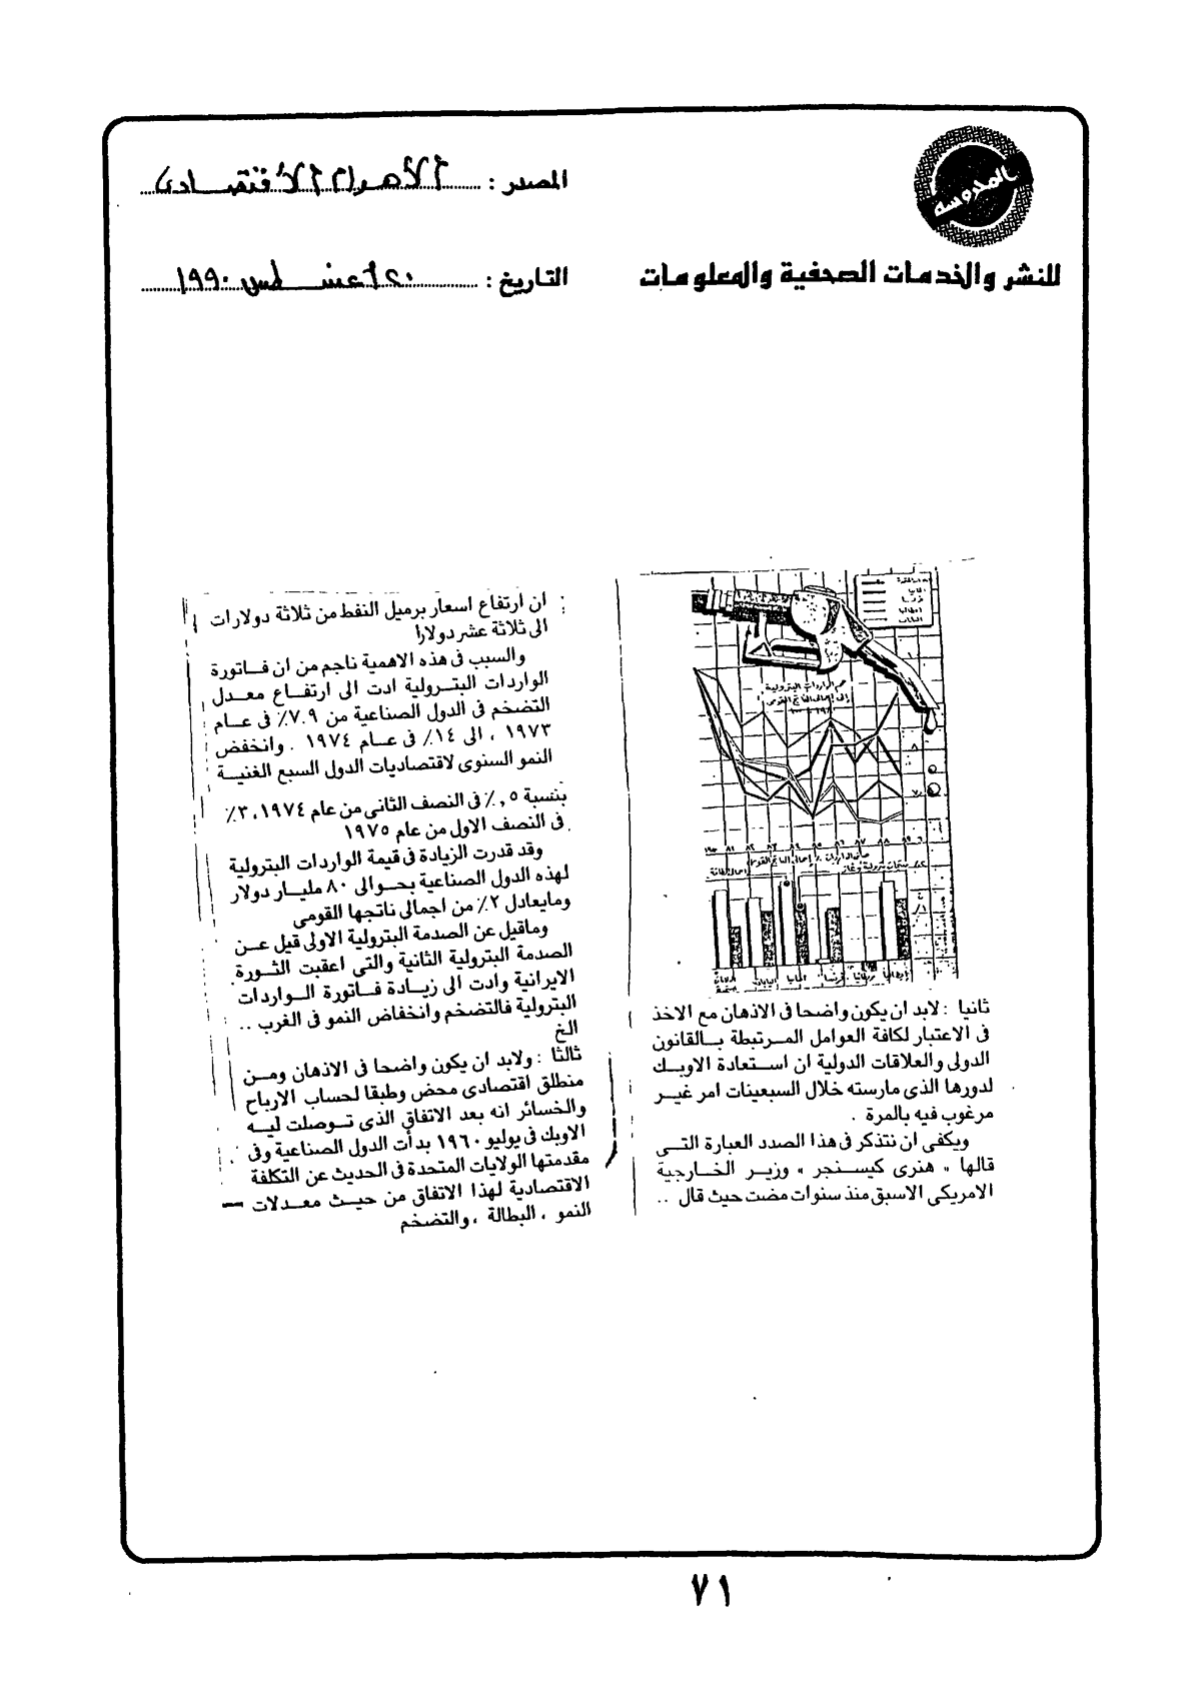 المحروسة
للنشر والخدمات الصحفية والمعلومات
المصدر : الأهرام الاقتصادى
التاريخ : ٢٠ أغسطس ١٩٩٠
حجم الواردات البترولية
ثانيا : لابد ان يكون واضحا فى الاذهان مع الاخذ
فى الاعتبار لكافة العوامل المرتبطة بالقانون
الدولى والعلاقات الدولية ان استعادة الاوبك
لدورها الذى مارسته خلال السبعينات امر غير
مرغوب فيه بالمرة .
ويكفى ان نتذكر فى هذا الصدد العبارة التى
قالها « هنرى كيسنجر » وزير الخارجية
الامريكى الاسبق منذ سنوات مضت حيث قال ..
ان ارتفاع اسعار برميل النفط من ثلاثة دولارات
الى ثلاثة عشر دولارا
والسبب فى هذه الاهمية ناجم من ان فاتورة
الواردات البترولية ادت الى ارتفاع معدل
التضخم فى الدول الصناعية من ٧.٩٪ فى عام
١٩٧٣ ، الى ١٤٪ فى عام ١٩٧٤ . وانخفض
النمو السنوى لاقتصاديات الدول السبع الغنية
بنسبة ٥,٪ فى النصف الثانى من عام ١٩٧٤، ٣٪
فى النصف الاول من عام ١٩٧٥
وقد قدرت الزيادة فى قيمة الواردات البترولية
لهذه الدول الصناعية بحوالى ٨٠ مليار دولار
ومايعادل ٢٪ من اجمالى ناتجها القومى
وماقيل عن الصدمة البترولية الاولى قيل عن
الصدمة البترولية الثانية والتى اعقبت الثورة
الايرانية وادت الى زيادة فاتورة الواردات
البترولية فالتضخم وانخفاض النمو فى الغرب ..
الخ
ثالثا : ولابد ان يكون واضحا فى الاذهان ومن
منطلق اقتصادى محض وطبقا لحساب الارباح
والخسائر انه بعد الاتفاق الذى توصلت ليه
الاوبك فى يوليو ١٩٦٠ بدأت الدول الصناعية وفى
مقدمتها الولايات المتحدة فى الحديث عن التكلفة
الاقتصادية لهذا الاتفاق من حيث معدلات
النمو ، البطالة ، والتضخم
٧١